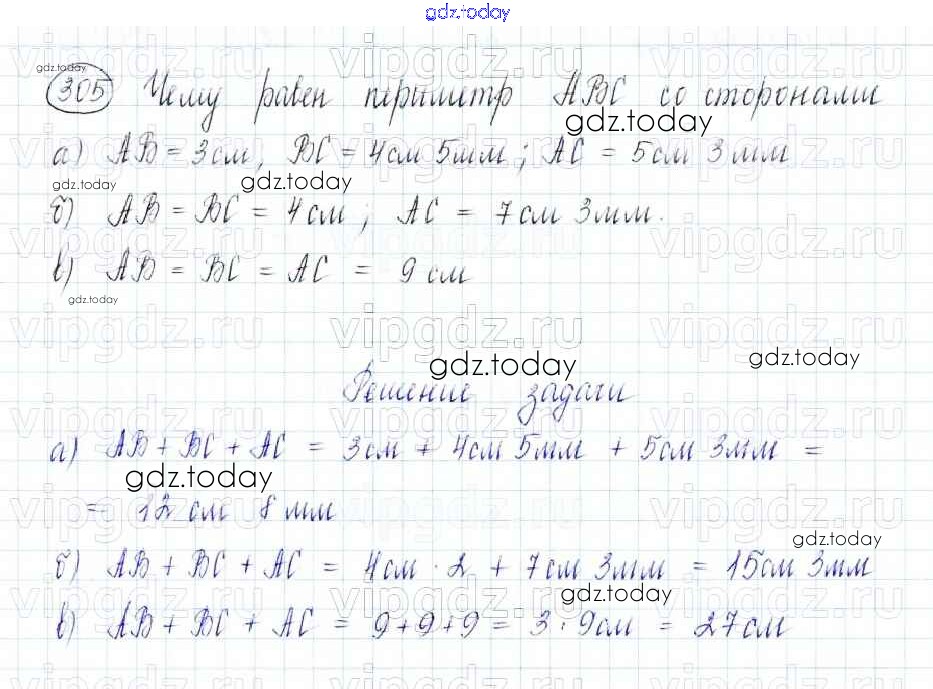 gdz.today
gdz.today
305 Чему равен периметр АВС со сторонами
gdz.today
а) АВ = 3см, ВС = 4см 5мм; АС = 5см 3мм
gdz.today gdz.today
б) АВ = ВС = 4см; АС = 7см 3мм.
в) АВ = ВС = АС = 9 см
gdz.today
vipgdz.ru
gdz.today gdz.today
Решение задачи
а) АВ + ВС + АС = 3см + 4см 5мм + 5см 3мм =
gdz.today
= 12 см 8 мм
gdz.today
б) АВ + ВС + АС = 4см · 2 + 7см 3мм = 15см 3мм
gdz.today
в) АВ + ВС + АС = 9+9+9 = 3 · 9см = 27см